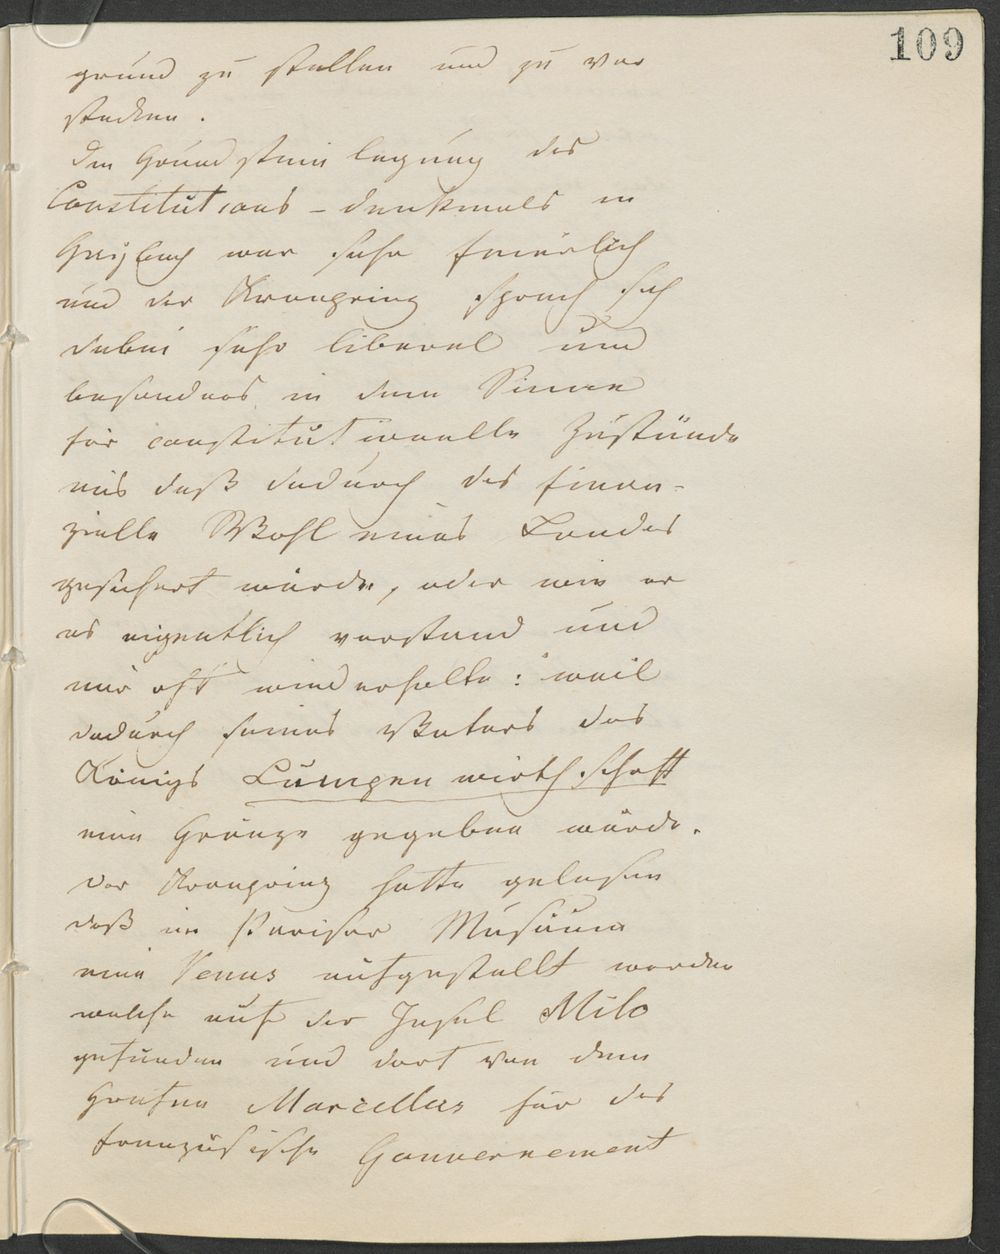 109
grund zu stellen und zu ver
stecken.
Die Grundsteinlegung des
Constitutions-denkmals in
Gaybach war sehr feierlich
und der Kronprinz sprach sich
dabei sehr liberal und
besonders in dem Sinne
für constitutionelle Zustände
aus daß dadurch das finan-
zielle Wohl eines Landes
gesichert würde, oder wie er
es eigentlich verstand und
mir oft wiederholte: weil
dadurch seines Vaters des
Königs Lumpenwirthschaft
eine Gränze gegeben würde.
Der Kronprinz hatte gelesen
daß im Pariser Museum
eine Venus aufgestellt worden
welche auf der Insel Milo
gefunden und dort von dem
Grafen Marcellus für das
französische Gouvernement